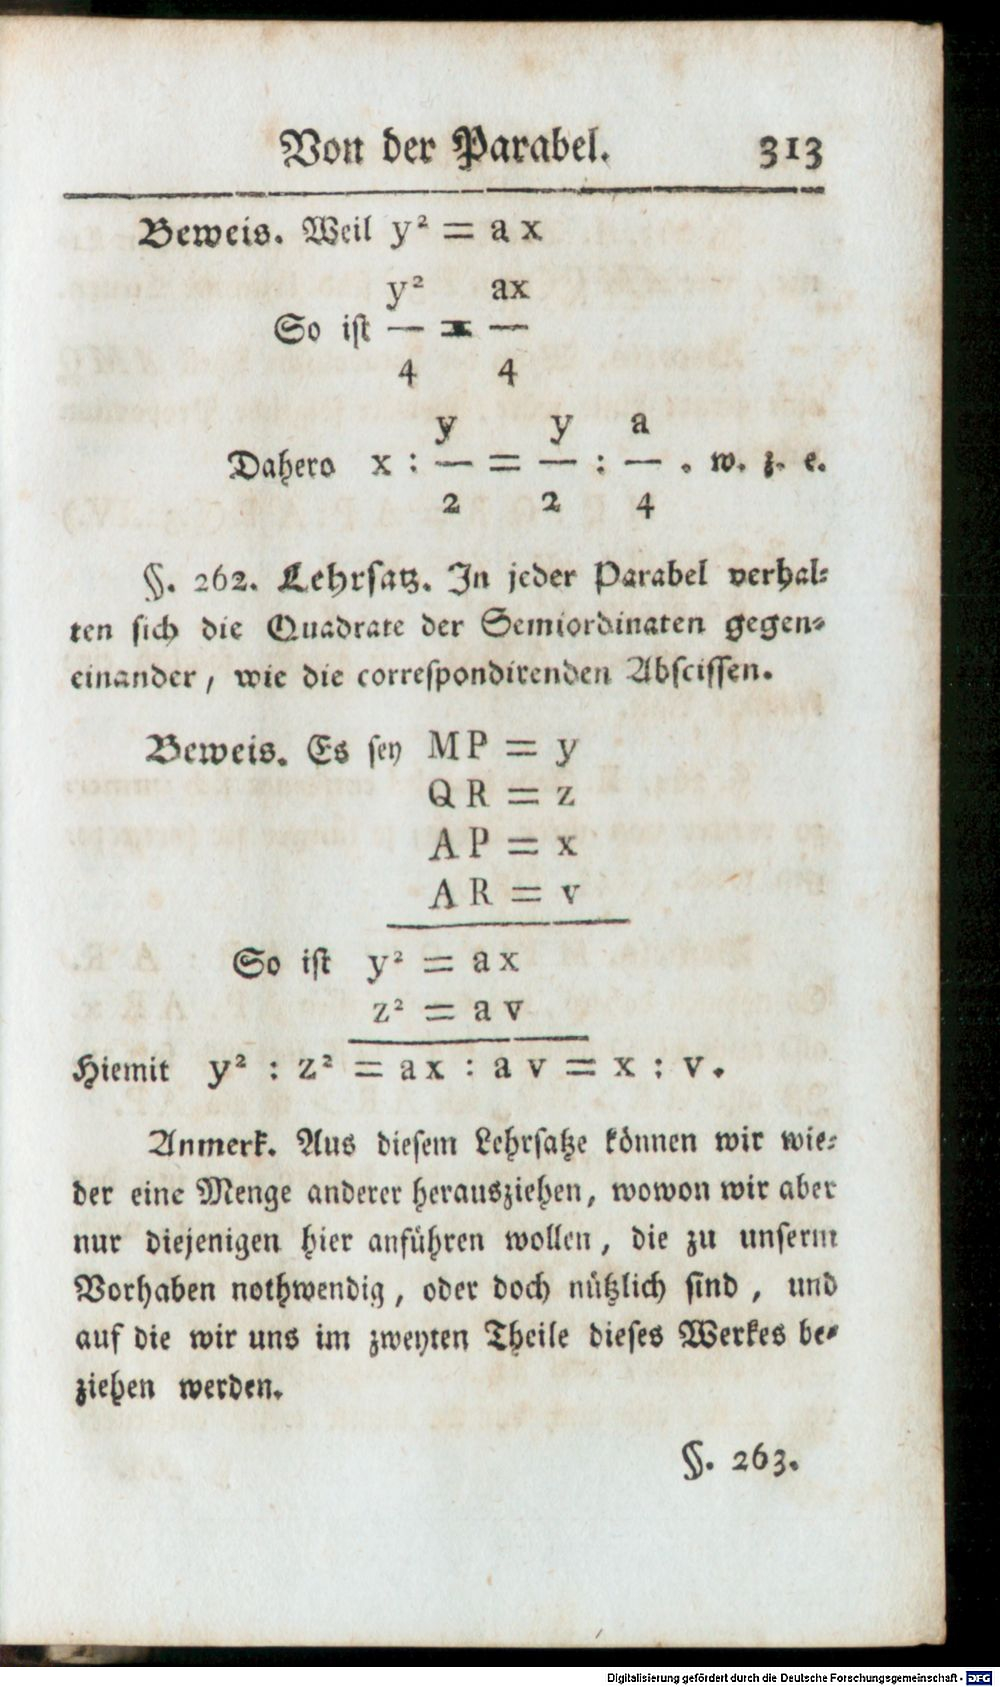 Von der Parabel. 313
Beweis. Weil y² = a x
y² ax
So ist — = —
4 4
y y a
Dahero x : — = — : — . w. z. e.
2 2 4
§. 262. Lehrsatz. In jeder Parabel verhal-
ten sich die Quadrate der Semiordinaten gegen-
einander, wie die correspondirenden Abscissen.
Beweis. Es sey MP = y
QR = z
AP = x
AR = v
So ist y² = ax
z² = av
Hiemit y² : z² = ax : av = x : v.
Anmerk. Aus diesem Lehrsatze können wir wie-
der eine Menge anderer herausziehen, wowon wir aber
nur diejenigen hier anführen wollen, die zu unserm
Vorhaben nothwendig, oder doch nützlich sind, und
auf die wir uns im zweyten Theile dieses Werkes be-
ziehen werden.
§. 263.
Digitalisierung gefördert durch die Deutsche Forschungsgemeinschaft - DFG